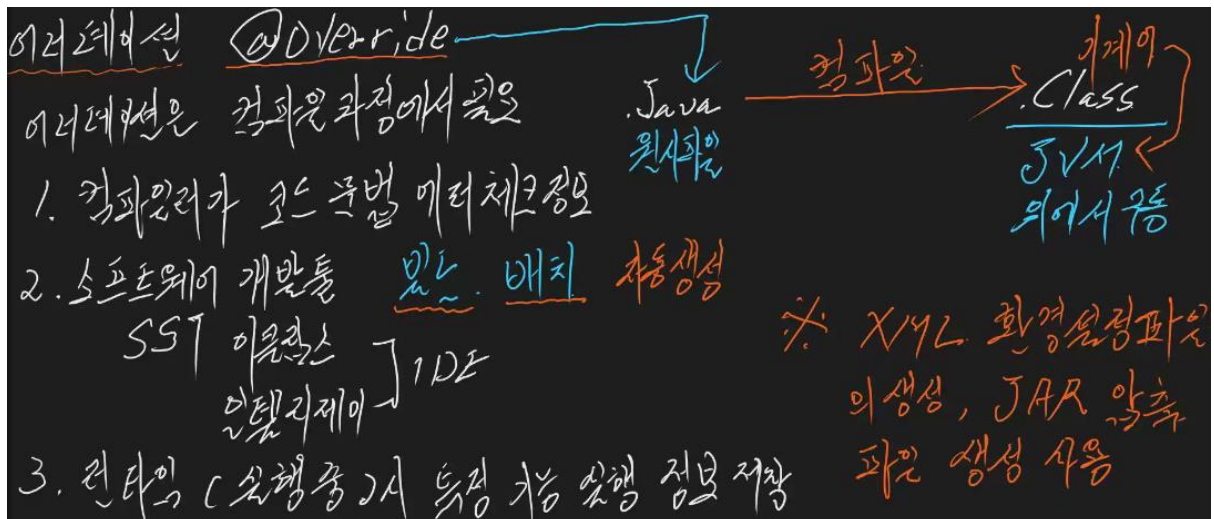 어너테이션 @Override
어너테이션은 컴파일 과정에서 필요
1. 컴파일러가 코드 문법 에러 체크 정보
2. 소프트웨어 개발툴 빌드. 배치 자동생성
SST 이클립스
인텔리제이 IDE
3. 런타임 (실행중)시 특정 기능 실행 정보 제공
.Java
원시파일
컴파일
기계어
.Class
JVM
위에서 구동
※ XML 환경설정파일
의 생성, JAR 압축
파일 생성 사용